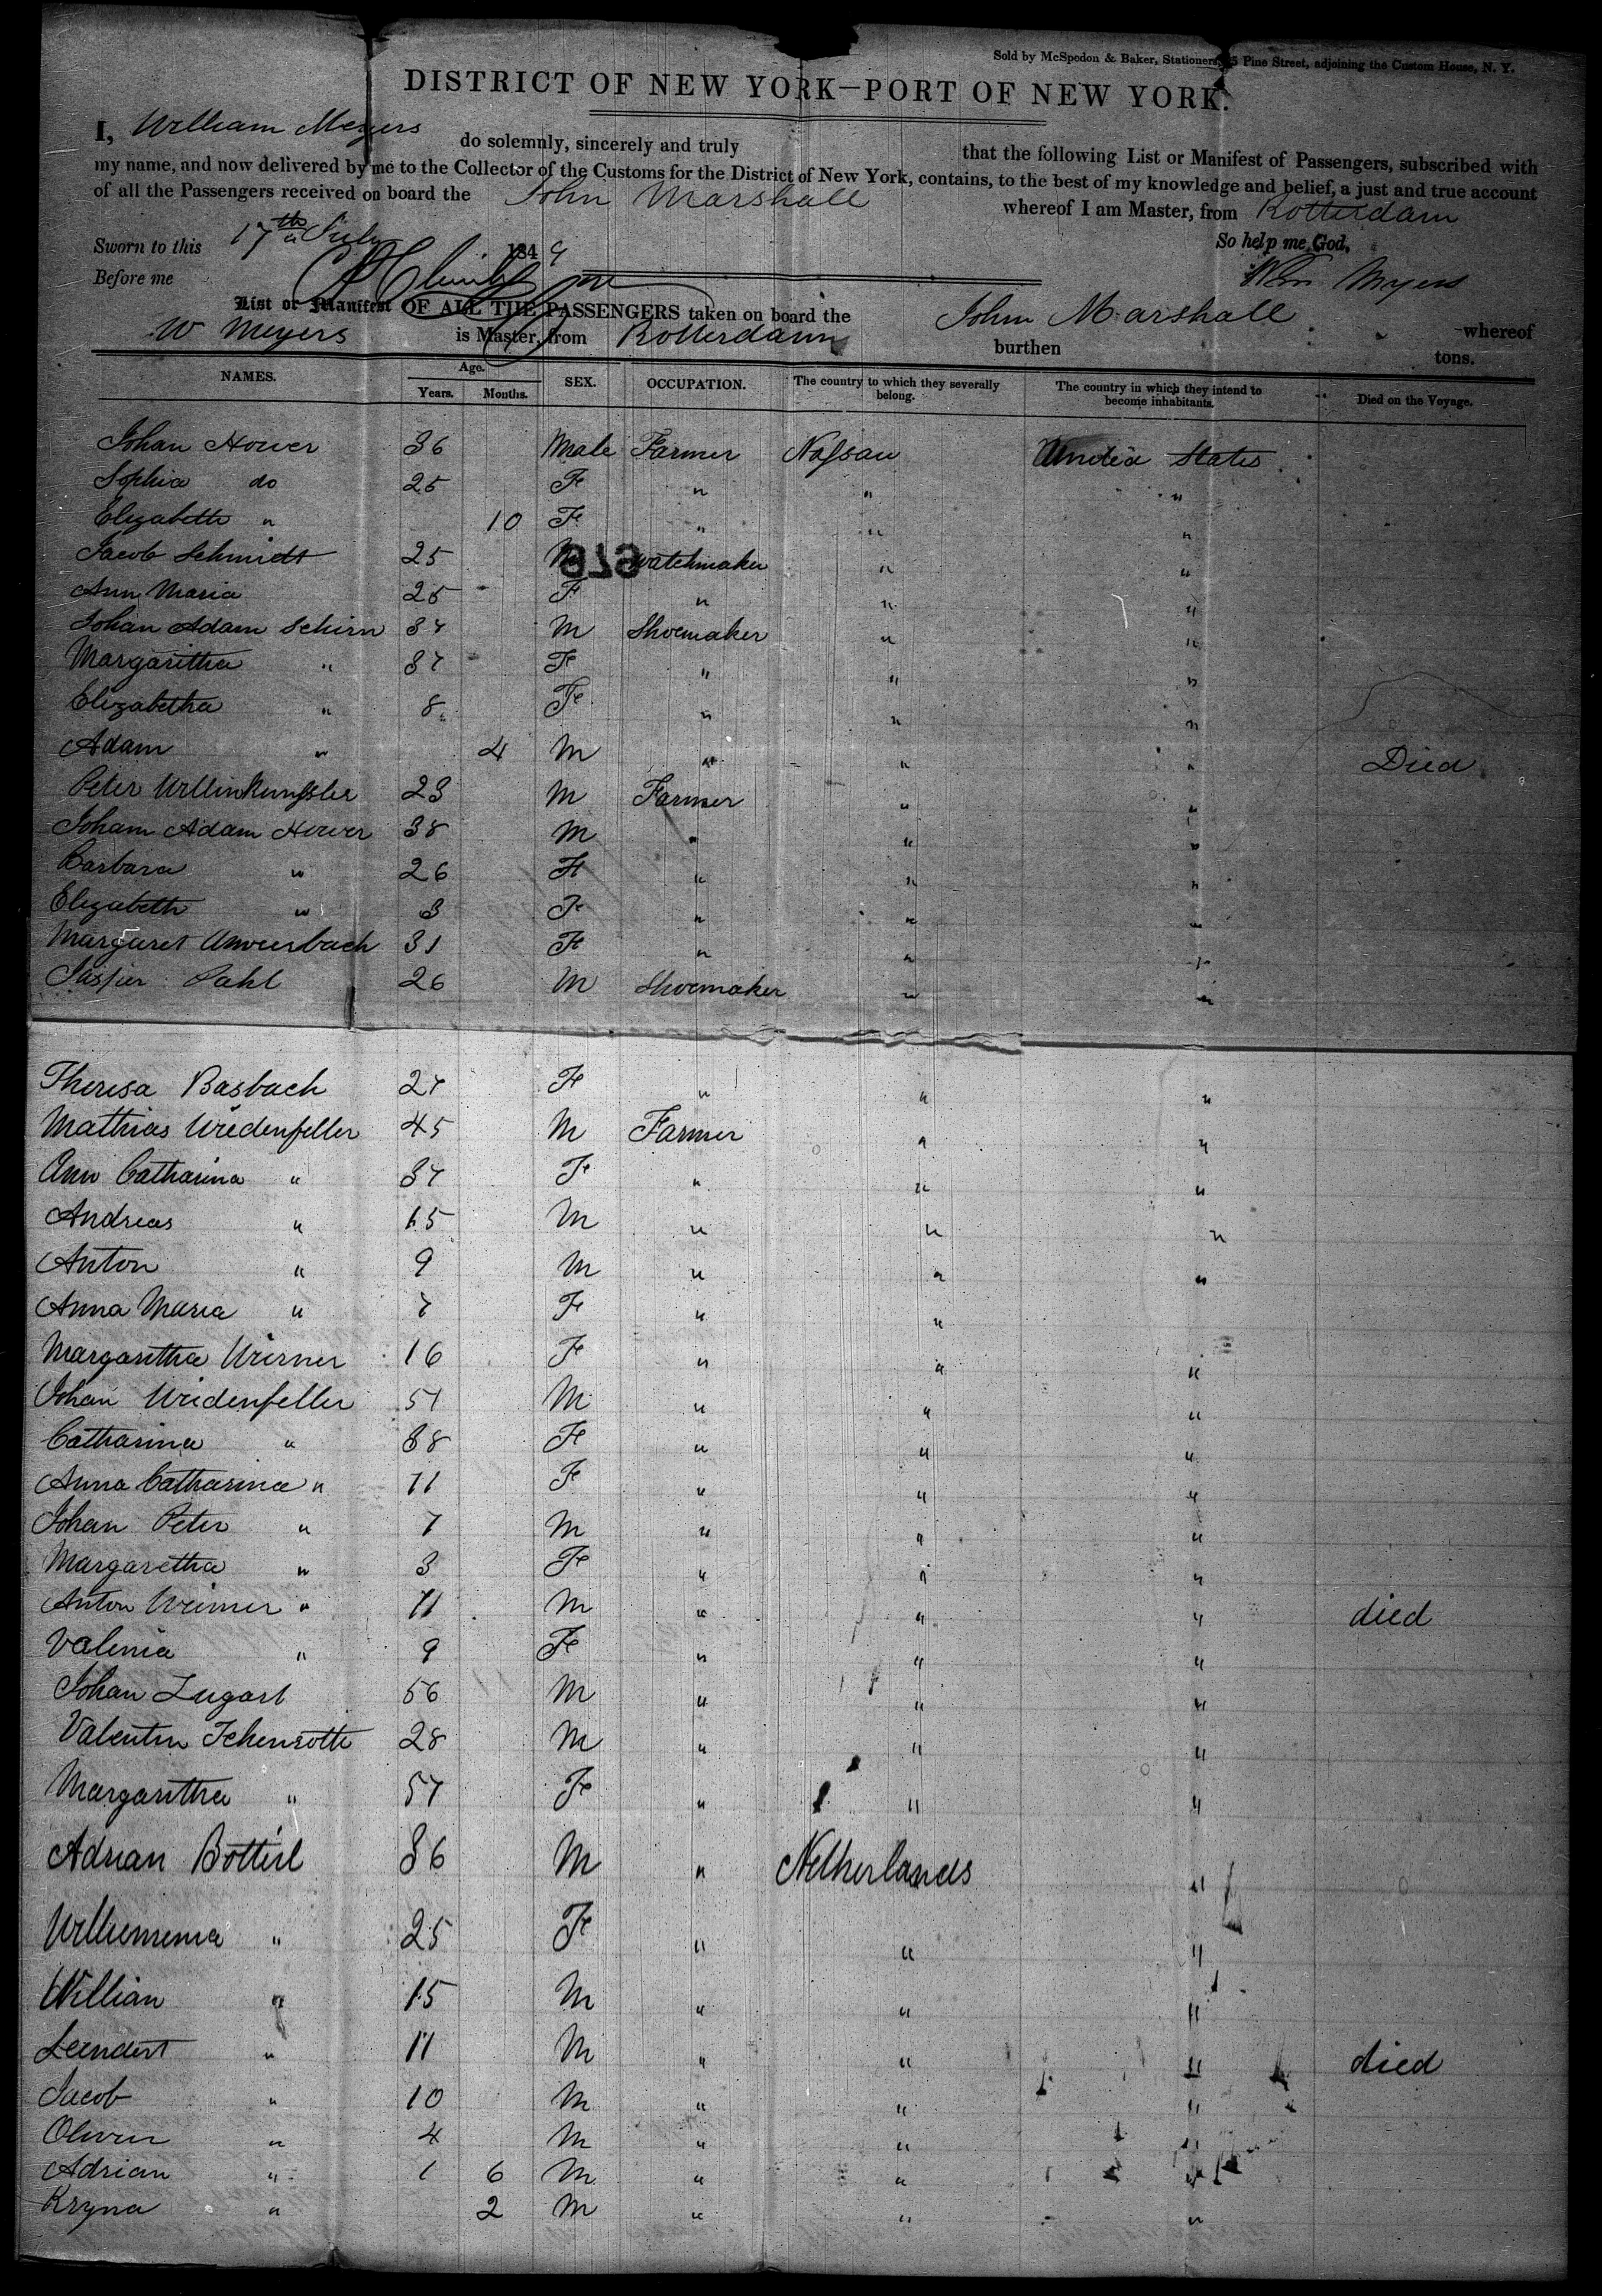 Sold by McSpedon & Baker, Stationers, 25 Pine Street, adjoining the Custom House, N. Y.
DISTRICT OF NEW YORK—PORT OF NEW YORK.
I, William Meyers do solemnly, sincerely and truly that the following List or Manifest of Passengers, subscribed with
my name, and now delivered by me to the Collector of the Customs for the District of New York, contains, to the best of my knowledge and belief, a just and true account
of all the Passengers received on board the John Marshall whereof I am Master, from Rotterdam
Sworn to this 17th July 1849 So help me God,
Before me Wm Myers
List or Manifest OF ALL THE PASSENGERS taken on board the John Marshall whereof
W Meyers is Master, from Rotterdam burthen tons.
NAMES. Age. Years. Months. SEX. OCCUPATION. The country to which they severally belong. The country in which they intend to become inhabitants. Died on the Voyage.
Johan Hower 36 Male Farmer Nassau United States
Sophia do 25 F " " "
Elizabeth " 10 F " " "
Jacob Schmidt 25 M Watchmaker " "
679
Ann Maria 25 F " " "
Johan Adam Schirn 37 M Shoemaker " "
Margaritha " 37 F " " "
Elizabetha " 8 F " " "
Adam " 4 M " " " Died
Peter 23 M Farmer " "
Joham Adam Hower 38 M " " "
Barbara " 26 F " " "
Elizabeth " 3 F " " "
Margaret 31 F " " "
Jasper Pahl 26 M Shoemaker " "
Theresa Basbach 27 F " " "
Mathias Weidenfeller 45 M Farmer " "
Ann Catharina " 37 F " " "
Andreas " 15 M " " "
Anton " 9 M " " "
Anna Maria " 7 F " " "
Margaritha 16 F " " "
Johan Weidenfeller 51 M " " "
Catharina " 38 F " " "
Anna Catharina " 11 F " " "
Johan Peter " 7 M " " "
Margaretha " 3 F " " "
Anton Weimer " 11 M " " " died
Valenia " 9 F " " "
Johan Zugart 56 M " " "
Valentin 28 M " " "
Margaritha " 57 F " " "
Adrian Bottirl 36 M " Netherlands "
Willhemema " 25 F " " "
Willian " 15 M " " "
Leendert " 11 M " " " died
Jacob " 10 M " " "
Oliver " 4 M " " "
Adrian " 1 6 M " " "
Kryna " 2 M " " "